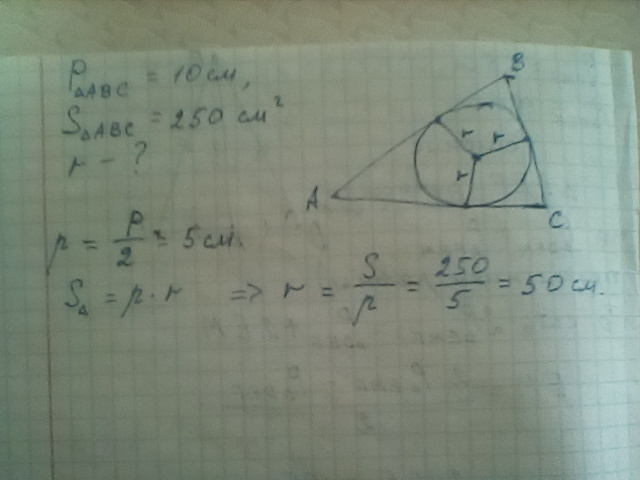 P△ABC = 10 см,
S△ABC = 250 см²
r - ?
A
B
C
r
r
r
p = P/2 = 5 см.
S△ = p · r => r = S/p = 250/5 = 50 см.